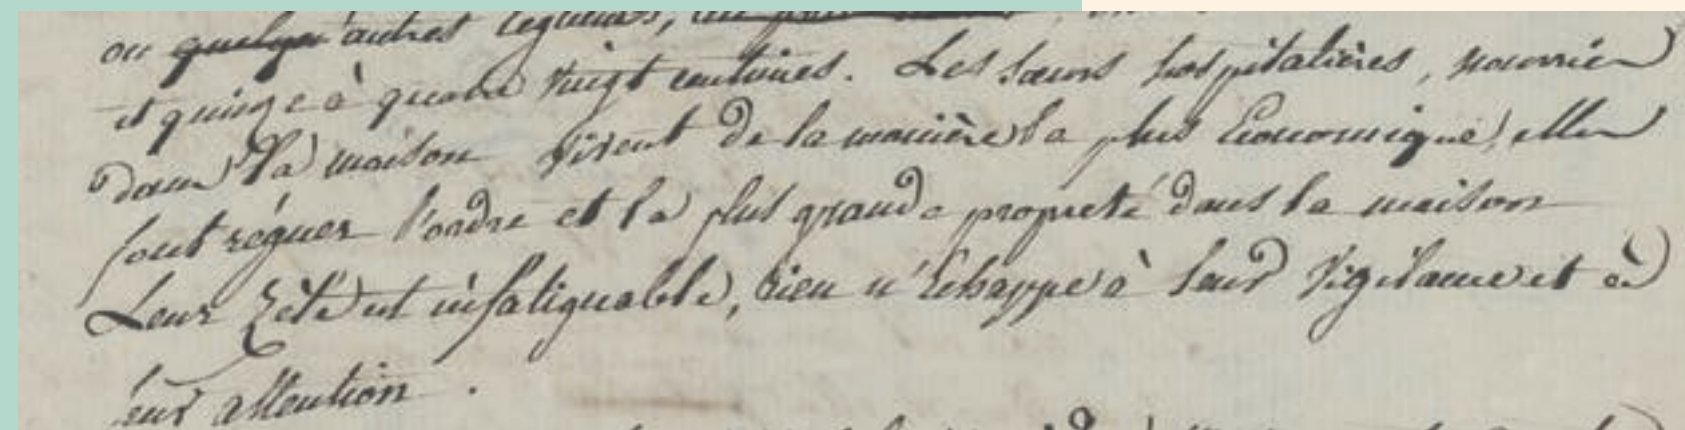 ou quelques autres légumes,
et quinze à quatre vingt centimes. Les sœurs hospitalières, nourries
dans la maison vivent de la manière la plus Economique, elles
font régner l'ordre et la plus grande propreté dans la maison
Leur Zèle est infatiguable, rien n'Echappe à leur vigilance et à
leur attention.